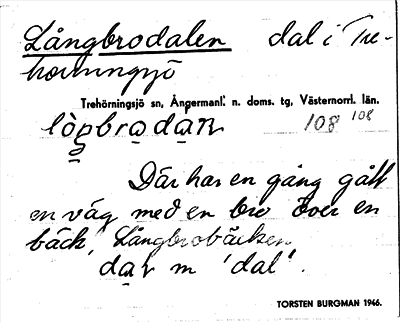 Långbrodalen dal i Tre-
hörningsjö
Trehörningsjö sn, Ångermanl. n. doms. tg, Västernorrl. län.
108 108
Där har en gång gått
en väg med en bro över en
bäck, Långbrobäcken.
daɽ m 'dal'.
TORSTEN BURGMAN 1946.